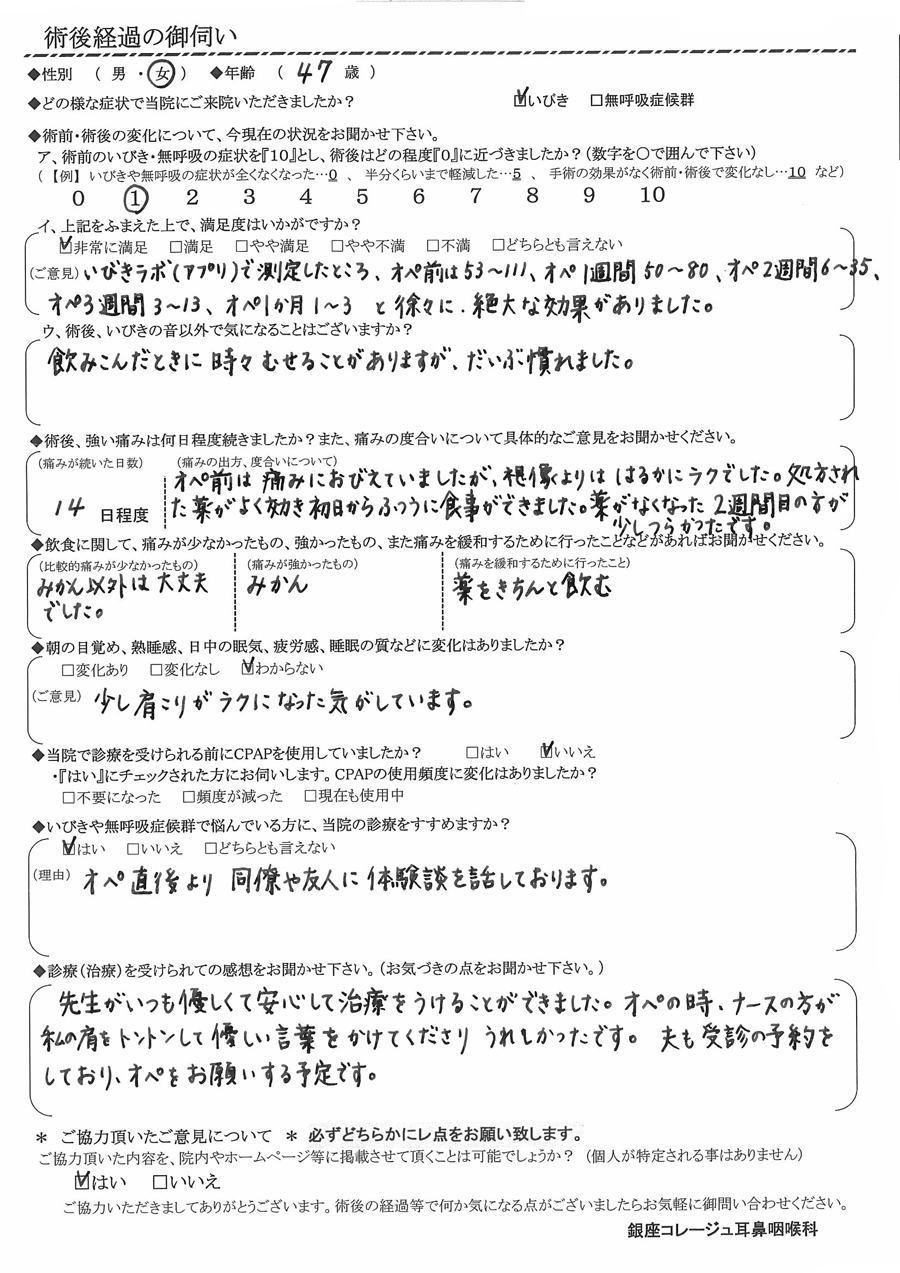 術後経過の御伺い
◆性別 （ 男 ・ 女 ） ◆年齢 （ 47 歳 ）
◆どの様な症状で当院にご来院いただきましたか？ ☑いびき □無呼吸症候群
◆術前・術後の変化について、今現在の状況をお聞かせ下さい。
ア、術前のいびき・無呼吸の症状を『10』とし、術後はどの程度『0』に近づきましたか？（数字を〇で囲んで下さい）
（【例】 いびきや無呼吸の症状が全くなくなった…0 、 半分くらいまで軽減した…5 、 手術の効果がなく術前・術後で変化なし…10 など）
0 1 2 3 4 5 6 7 8 9 10
イ、上記をふまえた上で、満足度はいかがですか？
☑非常に満足 □満足 □やや満足 □やや不満 □不満 □どちらとも言えない
（ご意見）いびきラボ（アプリ）で測定したところ、オペ前は53〜111、オペ1週間50〜80、オペ2週間6〜35、
オペ3週間3〜13、オペ1か月1〜3 と徐々に、絶大な効果がありました。
ウ、術後、いびきの音以外で気になることはございますか？
飲みこんだときに時々むせることがありますが、だいぶ慣れました。
◆術後、強い痛みは何日程度続きましたか？また、痛みの度合いについて具体的なご意見をお聞かせください。
（痛みが続いた日数） （痛みの出方、度合いについて）
オペ前は痛みにおびえていましたが、想像よりははるかにラクでした。処方され
14 日程度 た薬がよく効き初日からふつうに食事ができました。薬がなくなった2週間目の方が
少しつらかったです。
◆飲食に関して、痛みが少なかったもの、強かったもの、また痛みを緩和するために行ったことなどがあればお聞かせください。
（比較的痛みが少なかったもの） （痛みが強かったもの） （痛みを緩和するために行ったこと）
みかん以外は大丈夫 みかん 薬をきちんと飲む
でした。
◆朝の目覚め、熟睡感、日中の眠気、疲労感、睡眠の質などに変化はありましたか？
□変化あり □変化なし ☑わからない
（ご意見） 少し肩こりがラクになった気がしています。
◆当院で診療を受けられる前にCPAPを使用していましたか？ □はい ☑いいえ
・『はい』にチェックされた方にお伺いします。CPAPの使用頻度に変化はありましたか？
□不要になった □頻度が減った □現在も使用中
◆いびきや無呼吸症候群で悩んでいる方に、当院の診療をすすめますか？
☑はい □いいえ □どちらとも言えない
（理由） オペ直後より 同僚や友人に体験談を話しております。
◆診療（治療）を受けられての感想をお聞かせ下さい。（お気づきの点をお聞かせ下さい。）
先生がいつも優しくて安心して治療をうけることができました。オペの時、ナースの方が
私の肩をトントンして優しい言葉をかけてくださり うれしかったです。 夫も受診の予約を
しており、オペをお願いする予定です。
＊ ご協力頂いたご意見について ＊ 必ずどちらかにレ点をお願い致します。
ご協力頂いた内容を、院内やホームページ等に掲載させて頂くことは可能でしょうか？ （個人が特定される事はありません）
☑はい □いいえ
ご協力いただきましてありがとうございます。術後の経過等で何か気になる点がございましたらお気軽に御問い合わせください。
銀座コレージュ耳鼻咽喉科